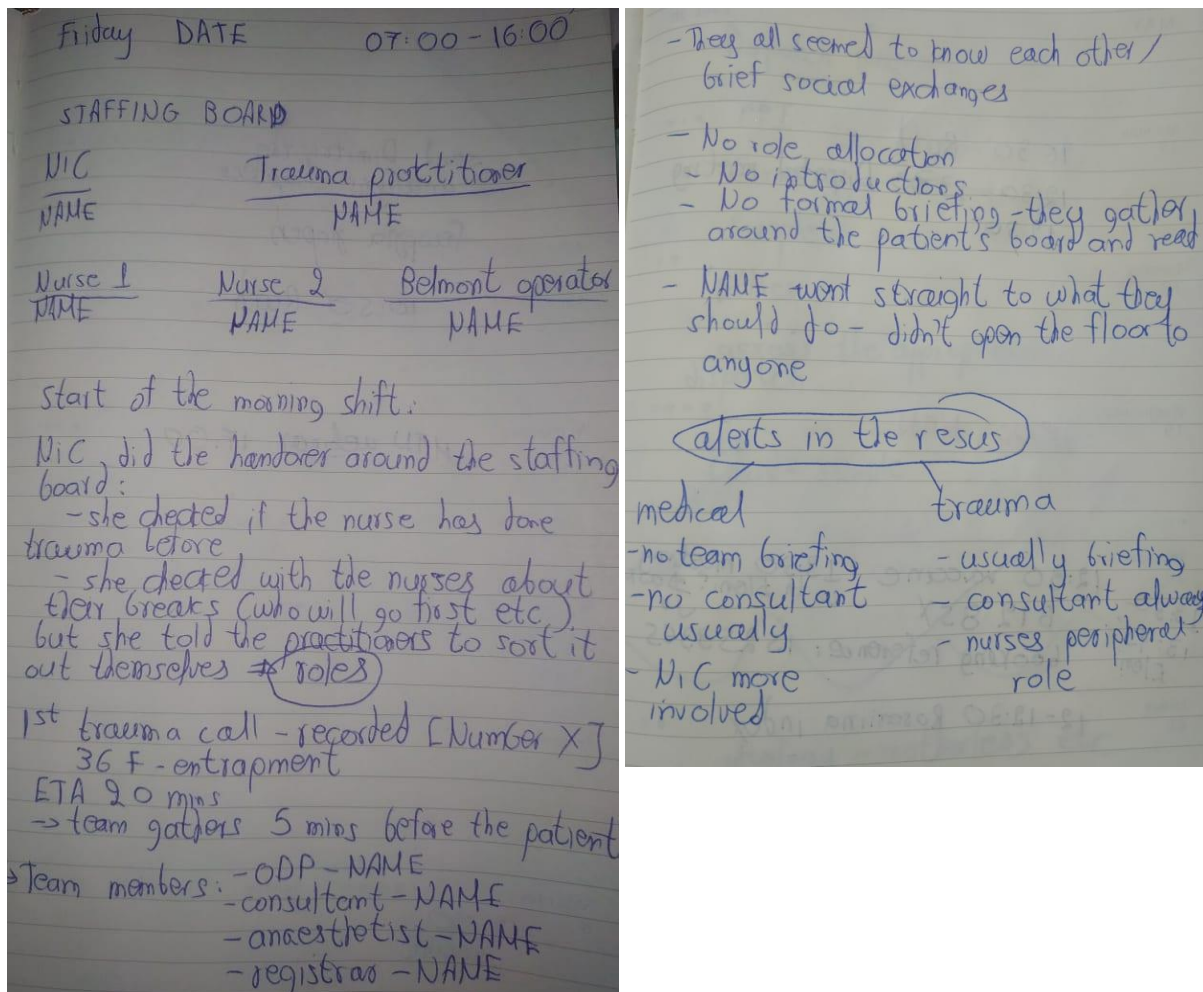 Friday DATE 07:00-16:00
STAFFING BOARD
NIC Trauma practitioner
NAME NAME
Nurse 1 Nurse 2 Belmont operator
NAME NAME NAME
start of the morning shift:
NiC, did the handover around the staffing
board:
- she checked if the nurse has done
trauma before
- she checked with the nurses about
their breaks (who will go first etc)
but she told the practitioners to sort it
out themselves → roles
1st trauma call - recorded [Number X]
36 F - entrapment
ETA 20 mins
→ team gathers 5 mins before the patient
→ Team members: - ODP - NAME
- consultant - NAME
- anaesthetist - NAME
- registrar - NAME
- They all seemed to know each other/
brief social exchanges
- No role allocation
- No introductions
- No formal briefing - they gather
around the patient's board and read
- NAME went straight to what they
should do - didn't open the floor to
anyone
alerts in the resus
medical trauma
- no team briefing - usually briefing
- no consultant - consultant always
usually - nurses peripheral
- NiC more role
involved